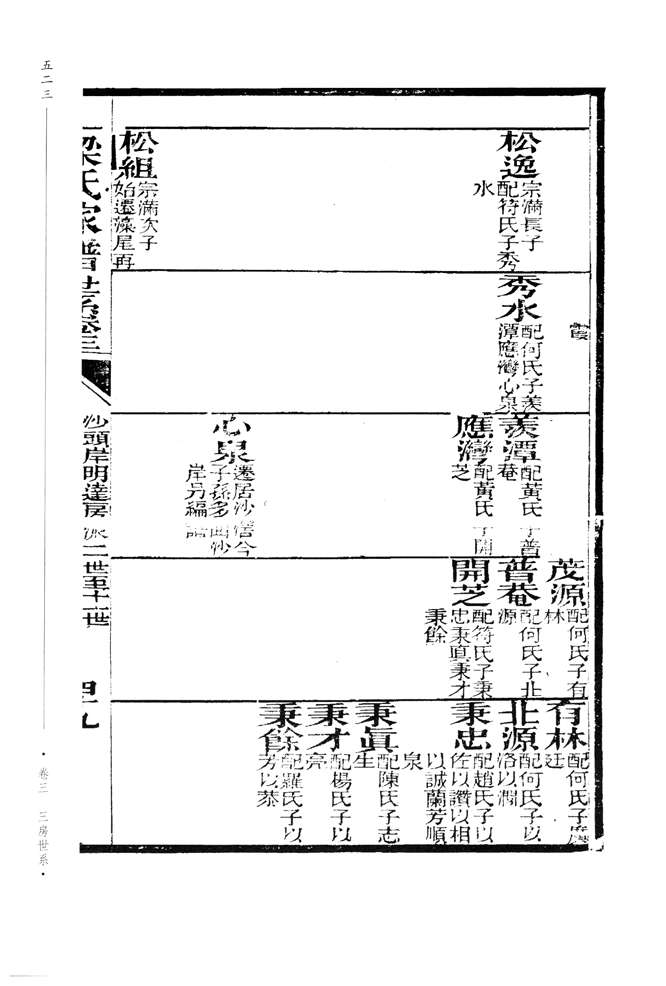 松逸
宗滿長子
配符氏子秀
水
松組
宗滿次子
始遷藻尾再
霞
秀水
配何氏子羨
潭應灣心泉
羨潭
配黃氏子普
菴
應灣
配黃氏子開
芝
心泉
遷居沙滘今
子孫多面沙
岸另編譜
茂源
配何氏子有
林
普菴
配何氏子北
源
開芝
配符氏子秉
忠秉眞秉才
秉餘
有林
配何氏子廣
廷
北源
配何氏子以
洛以潤
秉忠
配趙氏子以
佐以讚以相
以誠蘭芳順
泉
秉眞
配陳氏子志
生
秉才
配楊氏子以
亮
秉餘
配羅氏子以
芳以恭
梁氏家譜世系卷三
沙頭岸明達房 派二世至十一世
四十九
五二三
·卷三 三房世系·